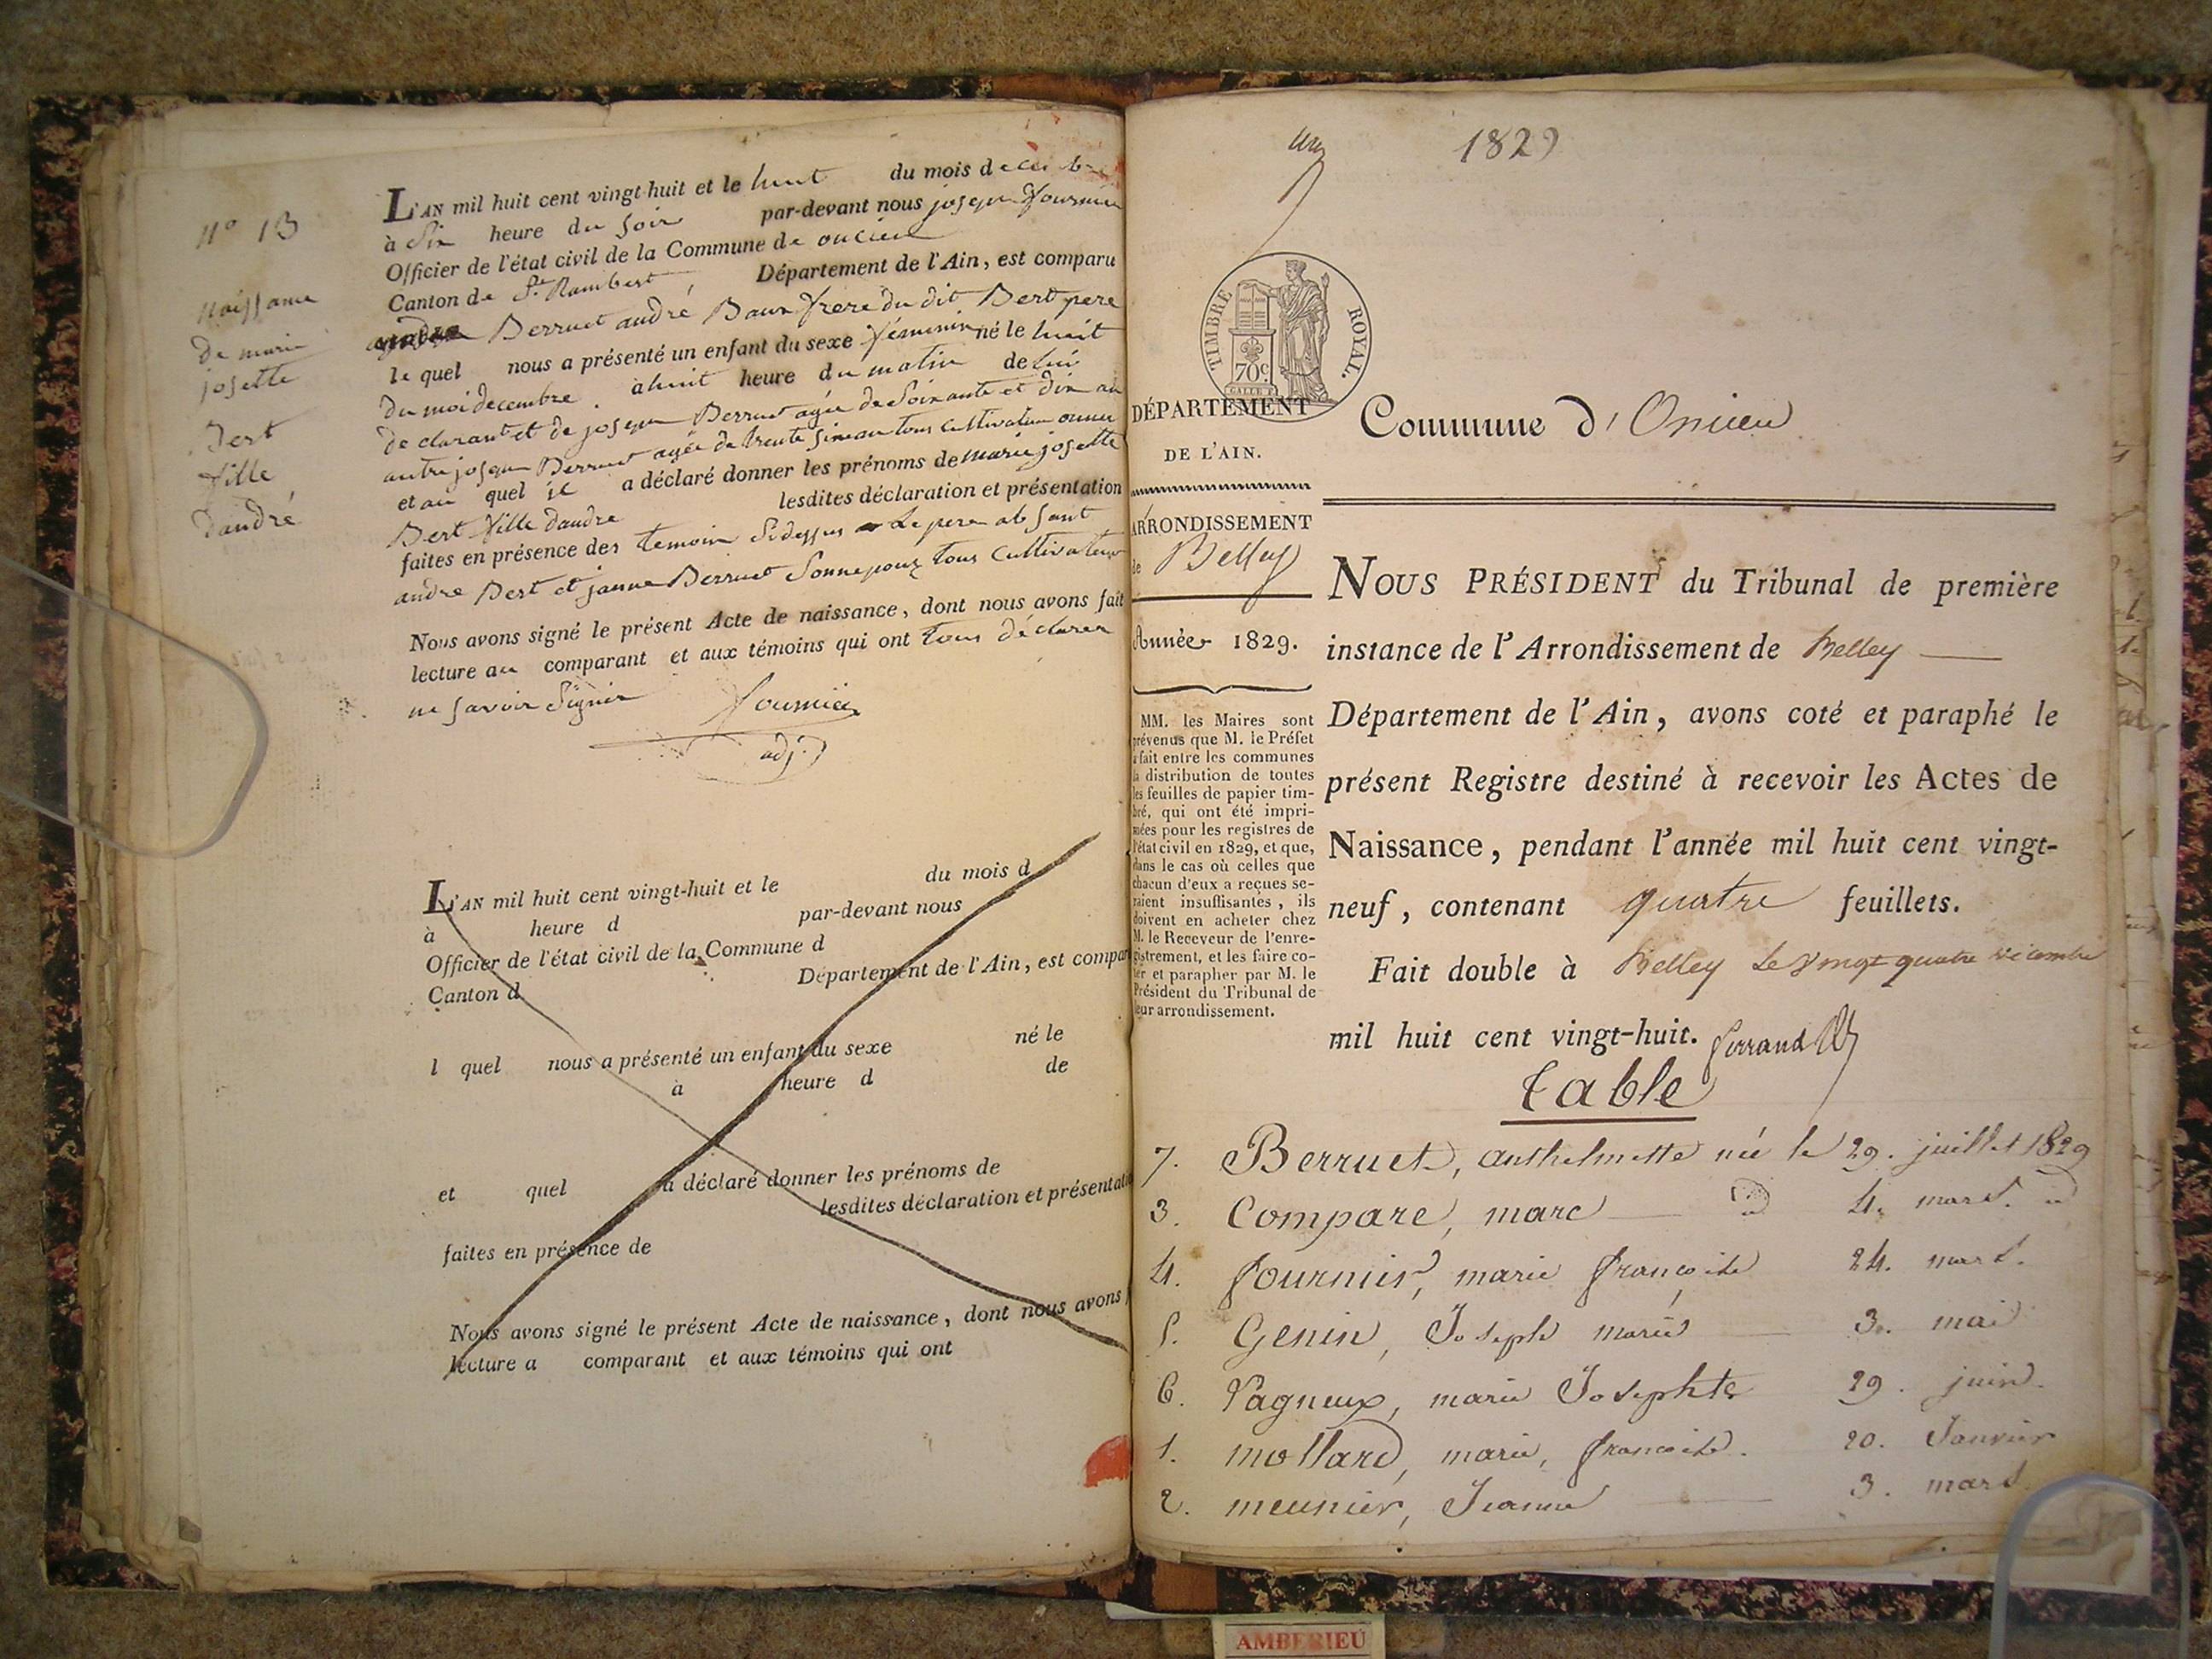 N° 13
naissance
de marie
josette
Bert
fille
dandré
L'AN mil huit cent vingt-huit et le huit du mois decembre
à Six heure du soir par-devant nous joseph fournier
Officier de l'état civil de la Commune de oncieu
Canton de St Rambert, Département de l'Ain, est comparu
Berruet andré Baux frere du dit Bert pere
le quel nous a présenté un enfant du sexe féminin né le huit
du moi decembre à huit heure du matin de lui
declarant et de joseph Berruet agée de Soixante et dix an
autre joseph Berruet agée de trente six an tous cultivateur
et au quel il a déclaré donner les prénoms de marie josette
Bert fille dandre lesdites déclaration et présentation
faites en présence des temoin Sidessus Le pere absant
andre Bert et janne Berruet Sonnepouz tous Cultivateur
Nous avons signé le présent Acte de naissance, dont nous avons fait
lecture au comparant et aux témoins qui ont tous déclarer
ne savoir Signer
fournier
adj.
L'AN mil huit cent vingt-huit et le du mois d
à heure d par-devant nous
Officier de l'état civil de la Commune d
Canton d Département de l'Ain, est compar
l quel nous a présenté un enfant du sexe né le
à heure d de
et quel a déclaré donner les prénoms de
lesdites déclaration et présentati
faites en présence de
Nous avons signé le présent Acte de naissance, dont nous avons
lecture a comparant et aux témoins qui ont
un
1829
TIMBRE ROYAL.
70c
DÉPARTEMENT
DE L'AIN.
ARRONDISSEMENT
de Belley
Année 1829.
MM. les Maires sont
prévenus que M. le Préfet
a fait entre les communes
la distribution de toutes
les feuilles de papier tim-
bré, qui ont été impri-
mées pour les registres de
l'état civil en 1829, et que,
dans le cas où celles que
chacun d'eux a reçues se-
raient insuffisantes, ils
doivent en acheter chez
M. le Receveur de l'enre-
gistrement, et les faire co-
ter et parapher par M. le
Président du Tribunal de
leur arrondissement.
Commune d'Oncieu
NOUS PRÉSIDENT du Tribunal de première
instance de l'Arrondissement de Belley
Département de l'Ain, avons coté et paraphé le
présent Registre destiné à recevoir les Actes de
Naissance, pendant l'année mil huit cent vingt-
neuf, contenant quatre feuillets.
Fait double à Belley Le vingt quatre decembre
mil huit cent vingt-huit. ferrand
table
7. Berruet, anthelmette née le 29. juillet 1829
3. Compare, marc d° 4. mars. d°
4. fournier, marie françoise 24. mars.
5. Genin, Joseph marie 3. mai
6. Vagneux, marie Josephte 29. juin.
1. mollard, marie, francoise. 20. Janvier
2. meunier, Jeanne 3. mars
AMBERIEU